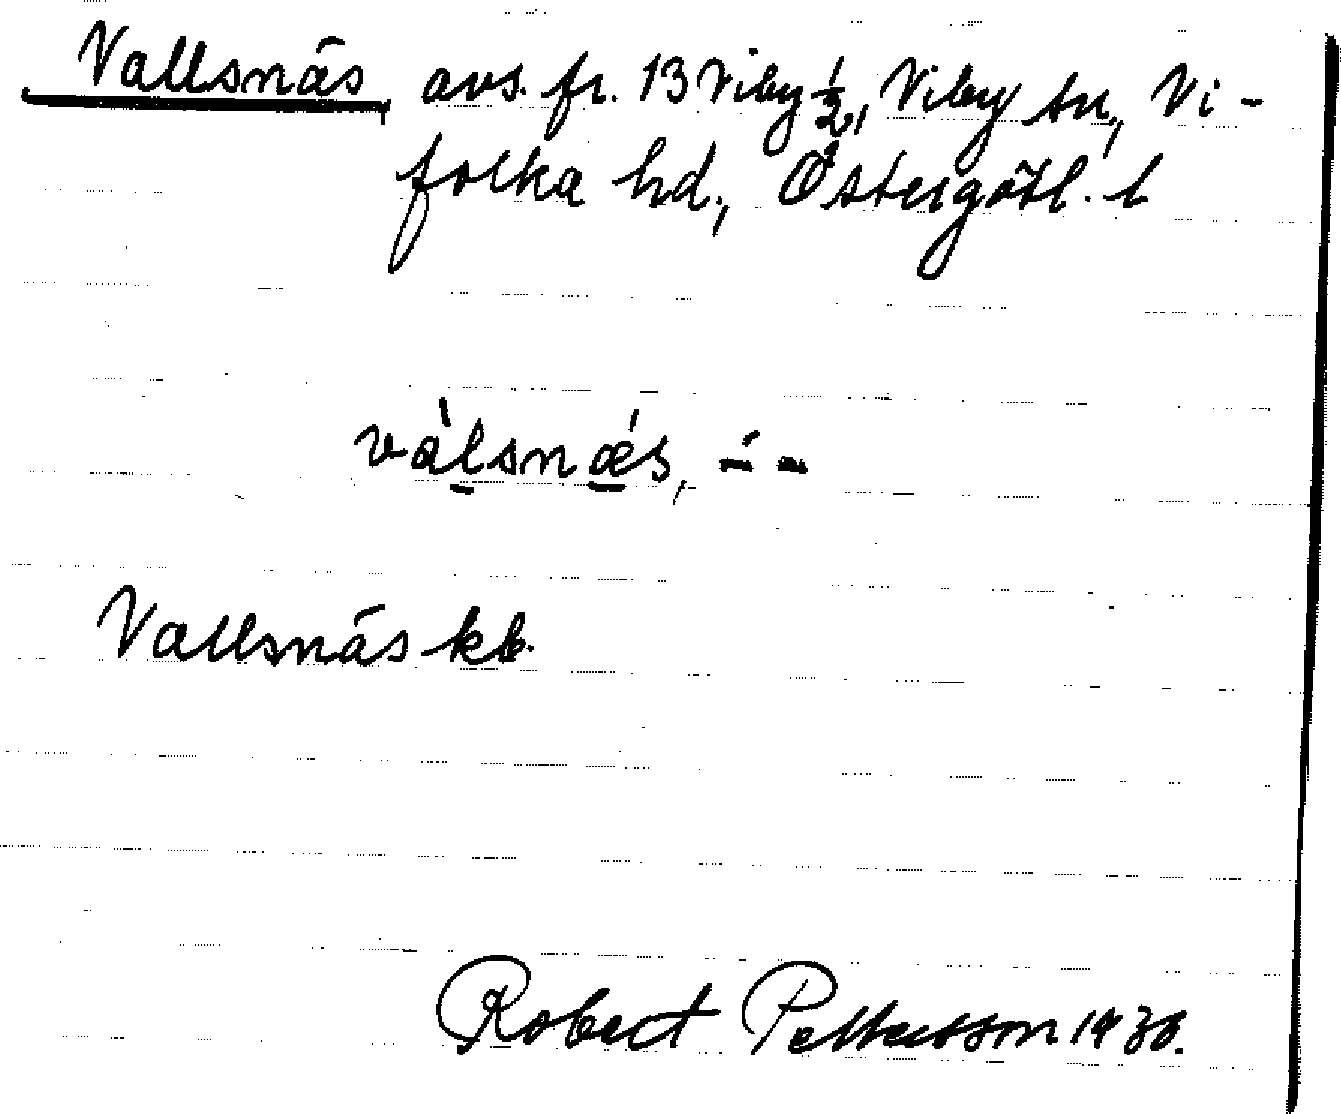 Vallsnäs avs. fr. 13 Viby ½, Viby sn, Vi-
folka hd., Östergötl. l
válsnæ̀s, -́ -
Vallsnäs kb.
Robert Pettersson